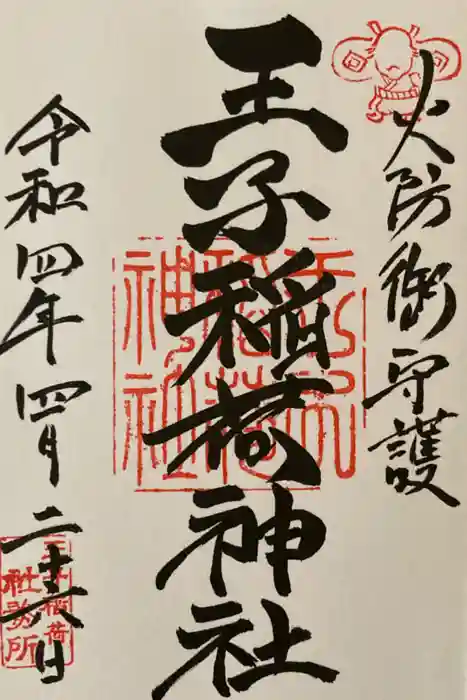 火防御守護
王子稲荷神社
王子稲荷神社
令和四年四月二十六日
王子稲荷
社務所